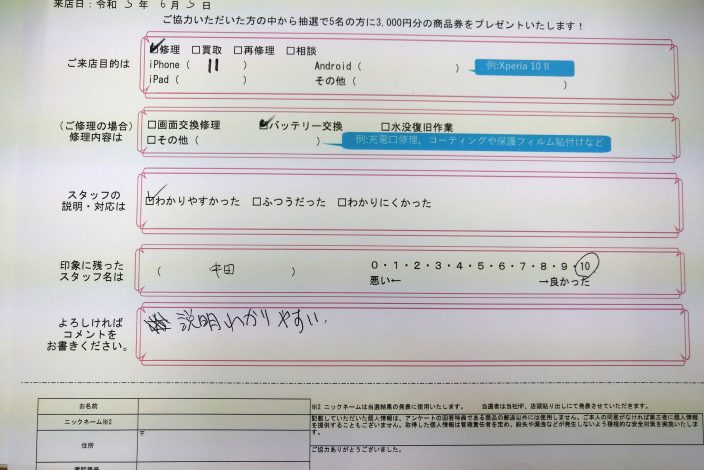 来店日：令和 5 年 6月 5 日
ご協力いただいた方の中から抽選で5名の方に3,000円分の商品券をプレゼントいたします！
ご来店目的は
☑修理 □買取 □再修理 □相談
iPhone（ 11 ） Android（ ） 例:Xperia 10 II
iPad（ ） その他（ ）
（ご修理の場合）
修理内容は
□画面交換修理 ☑バッテリー交換 □水没復旧作業
□その他（ ） 例:充電口修理、コーティングや保護フィルム貼付けなど
スタッフの
説明・対応は
☑わかりやすかった □ふつうだった □わかりにくかった
印象に残った
スタッフ名は
（ 中田 ） 0・1・2・3・4・5・6・7・8・9・10
悪い← →良かった
よろしければ
コメントを
お書きください。
説明わかりやすい.
お名前
ニックネーム※2
住所
〒
電話番号
※2 ニックネームは当選結果の発表に使用いたします。 当選者は当社HP、店頭貼り出しにて発表させていただきます。
記載していただいた個人情報は、アンケートの回答特典である商品の郵送以外には使用しません。ご本人の同意がなければ第三者に個人情報
を提供することもございません。取得した個人情報は管理責任者を定め、紛失や漏洩などが発生しないよう積極的な安全対策を実施いたしま
す。
ご協力ありがとうございました。